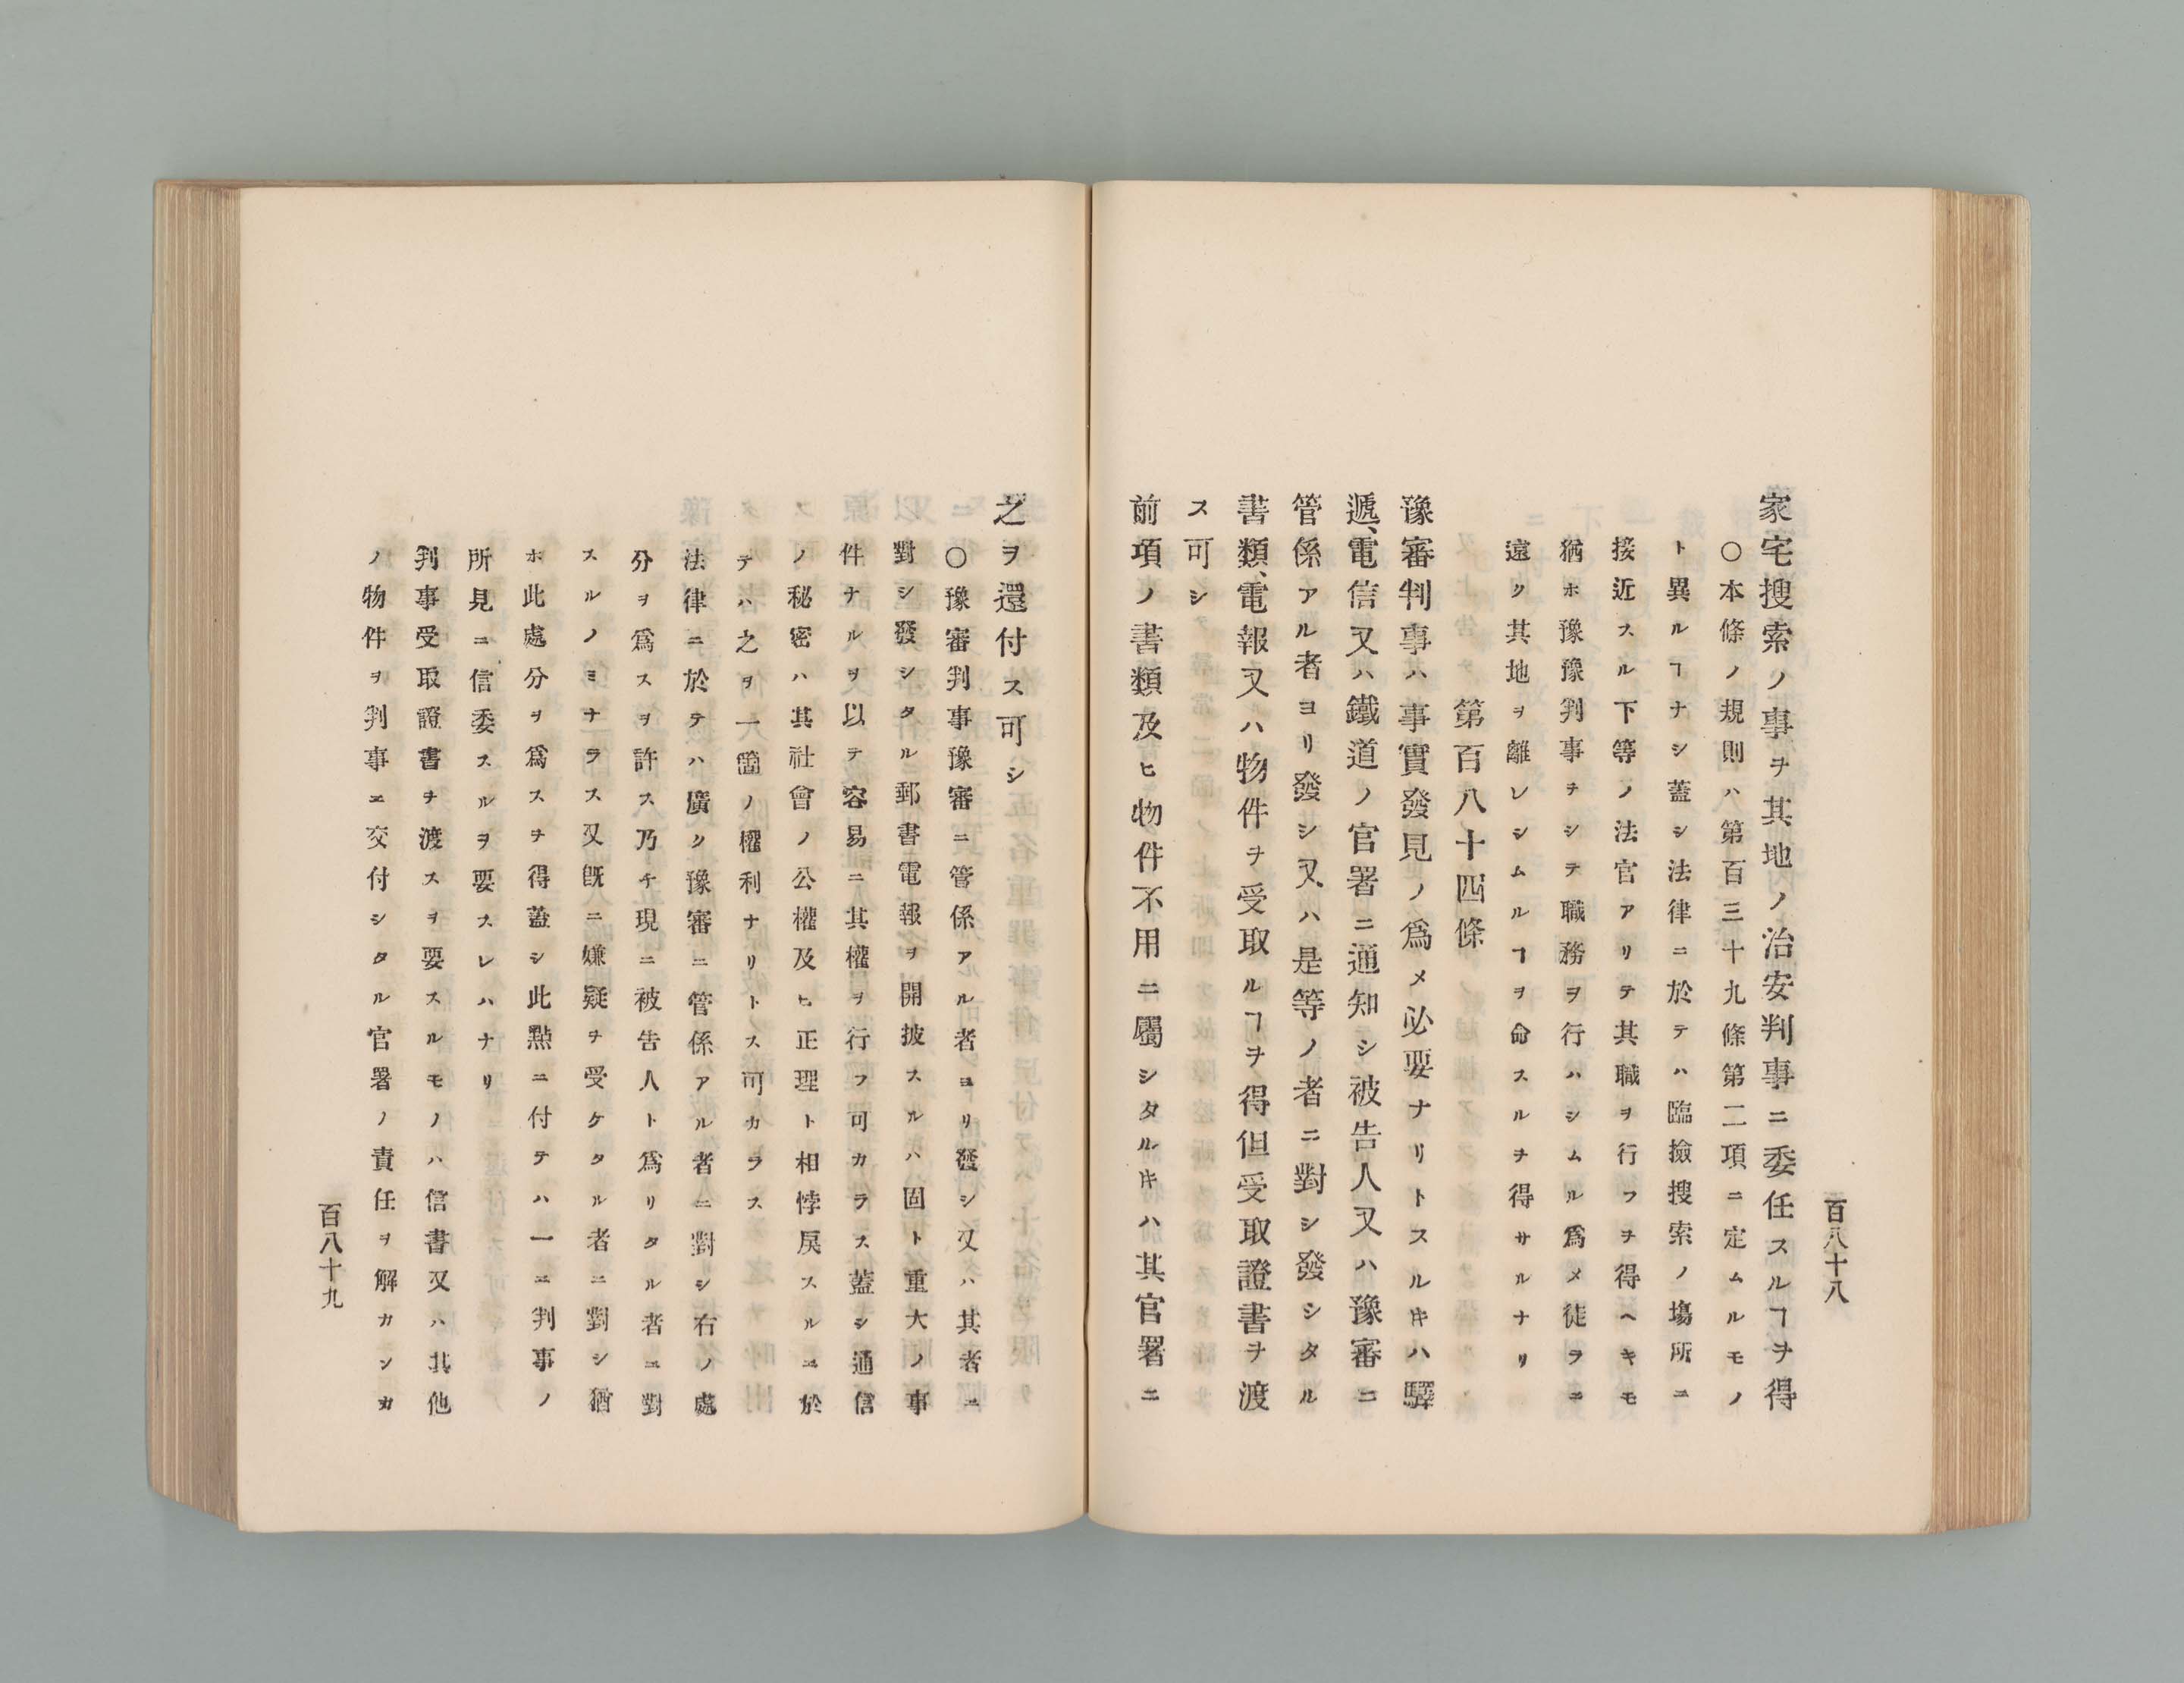 百八十八
家宅搜索ノ事ヲ其地ノ治安判事ニ委任スルヿヲ得
〇本條ノ規則ハ第百三十九條第二項ニ定ムルモノ
ト異ルヿナシ蓋シ法律ニ於テハ臨撿搜索ノ塲所ニ
接近スル下等ノ法官アリテ其職ヲ行フヲ得ヘキモ
猶ホ豫豫判事ヲシテ職務ヲ行ハシムル爲メ徒ラニ
遠ク其地ヲ離レシムルヿヲ命スルヲ得サルナリ
第百八十四條
豫審判事ハ事實發見ノ爲メ必要ナリトスルキハ驛
遞、電信又ハ鐵道ノ官署ニ通知シ被告人又ハ豫審ニ
管係アル者ヨリ發シ又ハ是等ノ者ニ對シ發シタル
書類、電報又ハ物件ヲ受取ルヿヲ得但受取證書ヲ渡
ス可シ
前項ノ書類及ヒ物件不用ニ屬シタルキハ其官署ニ
之ヲ還付ス可シ
〇豫審判事豫審ニ管係アル者ヨリ發シ又ハ其者ニ
對シ發シタル郵書電報ヲ開披スルハ固ト重大ノ事
件ナルヲ以テ容易ニ其權ヲ行フ可カラス蓋シ通信
ノ秘密ハ其社會ノ公權及ヒ正理ト相悖戻スルニ於
テハ之ヲ一大箇ノ權利ナリトス可カラス
法律ニ於テハ廣ク豫審ニ管係アル者ニ對シ右ノ處
分ヲ爲スヲ許ス乃チ現ニ被告人ト爲リタル者ニ對
スルノミナラス又既ニ嫌疑ヲ受ケタル者ニ對シ猶
ホ此處分ヲ爲スヲ得蓋シ此點ニ付テハ一ニ判事ノ
所見ニ信委スルヲ要スレハナリ
判事受取證書ヲ渡スヲ要スルモノハ信書又ハ其他
ノ物件ヲ判事ニ交付シタル官署ノ責任ヲ解カンカ
百八十九